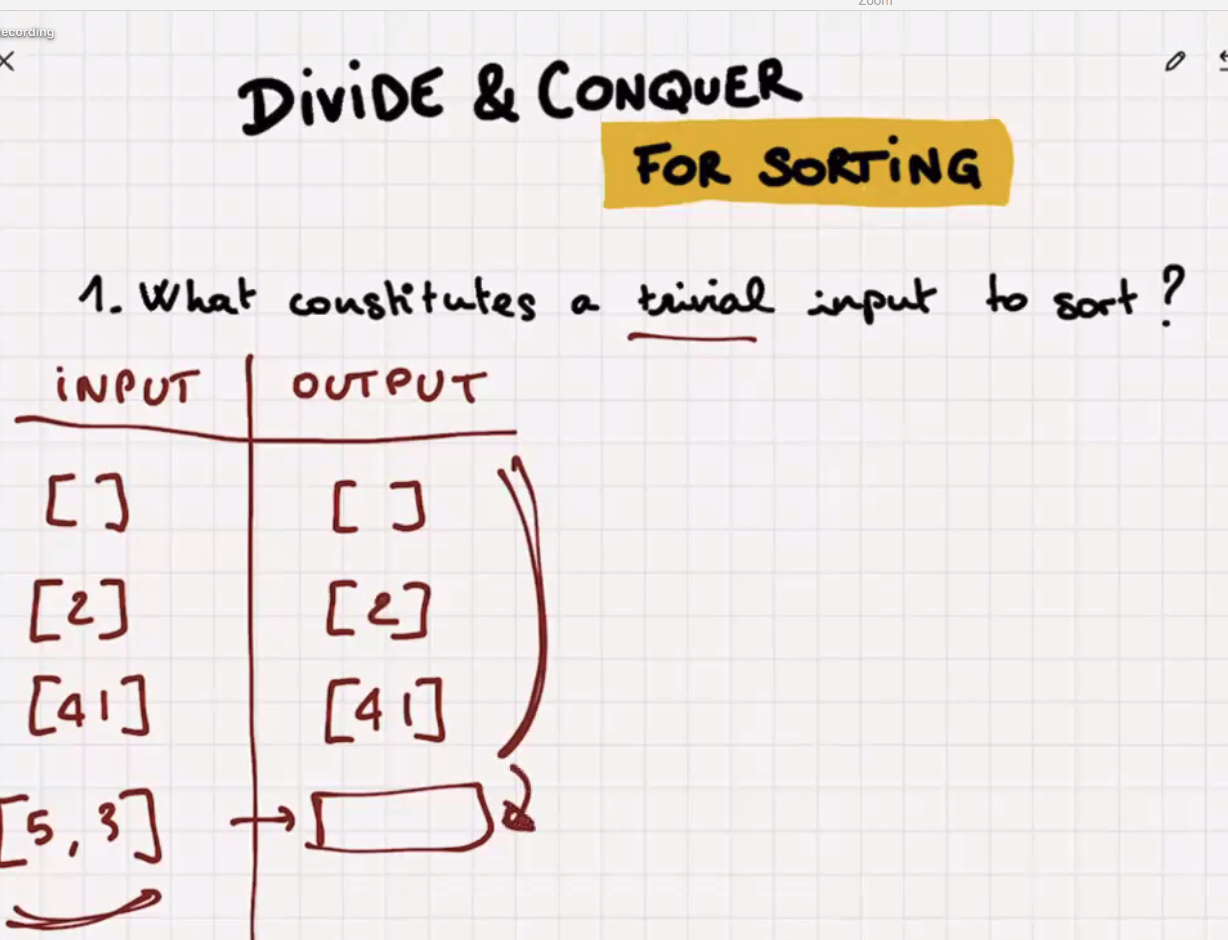 Zoom
ecording
DiViDE & CONQUER
FOR SORTiNG
1. What constitutes a trivial input to sort?
iNPUT OUTPUT
[ ] [ ]
[2] [2]
[41] [41]
[5, 3] →